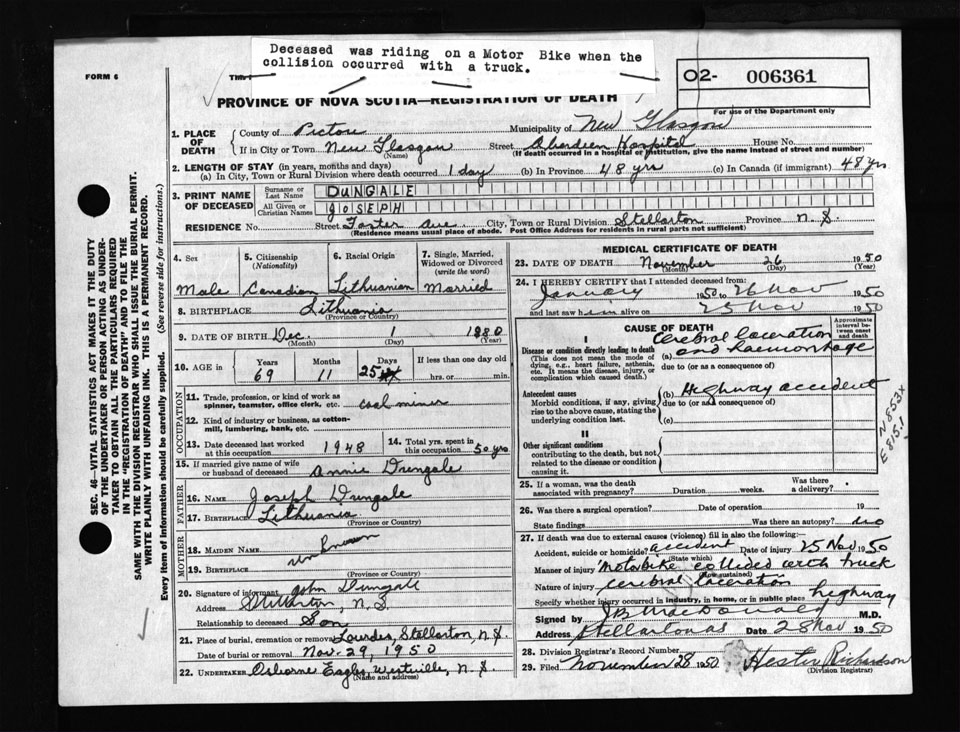 Deceased was riding on a Motor Bike when the
collision occurred with a truck.
FORM 6
O2- 006361
For use of the Department only
PROVINCE OF NOVA SCOTIA—REGISTRATION OF DEATH
1. PLACE OF DEATH
County of Pictou Municipality of New Glasgow
If in City or Town New Glasgow (Name) Street Aberdeen Hospital House No.
(If death occurred in a hospital or institution, give the name instead of street and number)
2. LENGTH OF STAY (in years, months and days)
(a) In City, Town or Rural Division where death occurred 1 day (b) In Province 48 yrs (c) In Canada (if immigrant) 48 yrs
3. PRINT NAME OF DECEASED
Surname or Last Name DUNGALE
All Given or Christian Names JOSEPH
RESIDENCE No. Street Foster Ave City, Town or Rural Division Stellarton Province N.S.
(Residence means usual place of abode. Post Office Address for residents in rural parts not sufficient)
4. Sex Male
5. Citizenship (Nationality) Canadian
6. Racial Origin Lithuanian
7. Single, Married, Widowed or Divorced (write the word) Married
8. BIRTHPLACE Lithuania
(Province or Country)
9. DATE OF BIRTH Dec. (Month) 1 (Day) 1880 (Year)
10. AGE in Years 69 Months 11 Days 25 If less than one day old hrs. or min.
OCCUPATION
11. Trade, profession, or kind of work as spinner, teamster, office clerk, etc. coal miner
12. Kind of industry or business, as cotton-mill, lumbering, bank, etc.
13. Date deceased last worked at this occupation 1948
14. Total yrs. spent in this occupation 50 yrs.
15. If married give name of wife or husband of deceased Annie Dungale
FATHER
16. NAME Joseph Dungale
17. BIRTHPLACE Lithuania
(Province or Country)
MOTHER
18. MAIDEN NAME unknown
19. BIRTHPLACE
(Province or Country)
20. Signature of informant John Dungale
Address Stellarton, N.S.
Relationship to deceased Son
21. Place of burial, cremation or removal Lourdes, Stellarton, N.S.
Date of burial or removal Nov. 29, 1950
22. UNDERTAKER Osborne Eagles, Westville, N.S.
(Name and address)
MEDICAL CERTIFICATE OF DEATH
23. DATE OF DEATH November (Month) 26 (Day) 1950 (Year)
24. I HEREBY CERTIFY that I attended deceased from:
January 1950 to 26 Nov 1950
and last saw him alive on 25 Nov 1950
CAUSE OF DEATH
Approximate interval between onset and death
I
Disease or condition directly leading to death
(This does not mean the mode of dying, e.g., heart failure, asthenia, etc. It means the disease, injury, or complication which caused death.)
(a) Cerebral laceration and haemorrhage
due to (or as a consequence)
Antecedent causes
Morbid conditions, if any, giving rise to the above cause, stating the underlying condition last.
(b) Highway accident
due to (or as a consequence)
(c)
N853x
E815.1
II
Other significant conditions
contributing to the death, but not related to the disease or condition causing it.
25. If a woman, was the death associated with pregnancy? Duration weeks. Was there a delivery?
26. Was there a surgical operation? Date of operation 19
State findings Was there an autopsy? no
27. If death was due to external causes (violence) fill in also the following:
Accident, suicide or homicide? accident Date of injury 25 Nov 1950
(State which)
Manner of injury Motorbike collided with truck
(How sustained)
Nature of injury Cerebral laceration
Specify whether injury occurred in industry, in home, or in public place highway
Signed by J B MacDonald M.D.
Address Stellarton NS Date 28 Nov 1950
28. Division Registrar's Record Number
29. Filed November 28 1950 Hester Richardson
(Division Registrar)
SEC. 46—VITAL STATISTICS ACT MAKES IT THE DUTY
OF THE UNDERTAKER OR PERSON ACTING AS UNDER-
TAKER TO OBTAIN ALL THE PARTICULARS REQUIRED
IN THE "REGISTRATION OF DEATH" AND TO FILE THE
SAME WITH THE DIVISION REGISTRAR WHO SHALL ISSUE THE BURIAL PERMIT.
WRITE PLAINLY WITH UNFADING INK. THIS IS A PERMANENT RECORD.
Every item of information should be carefully supplied. (See reverse side for instructions.)